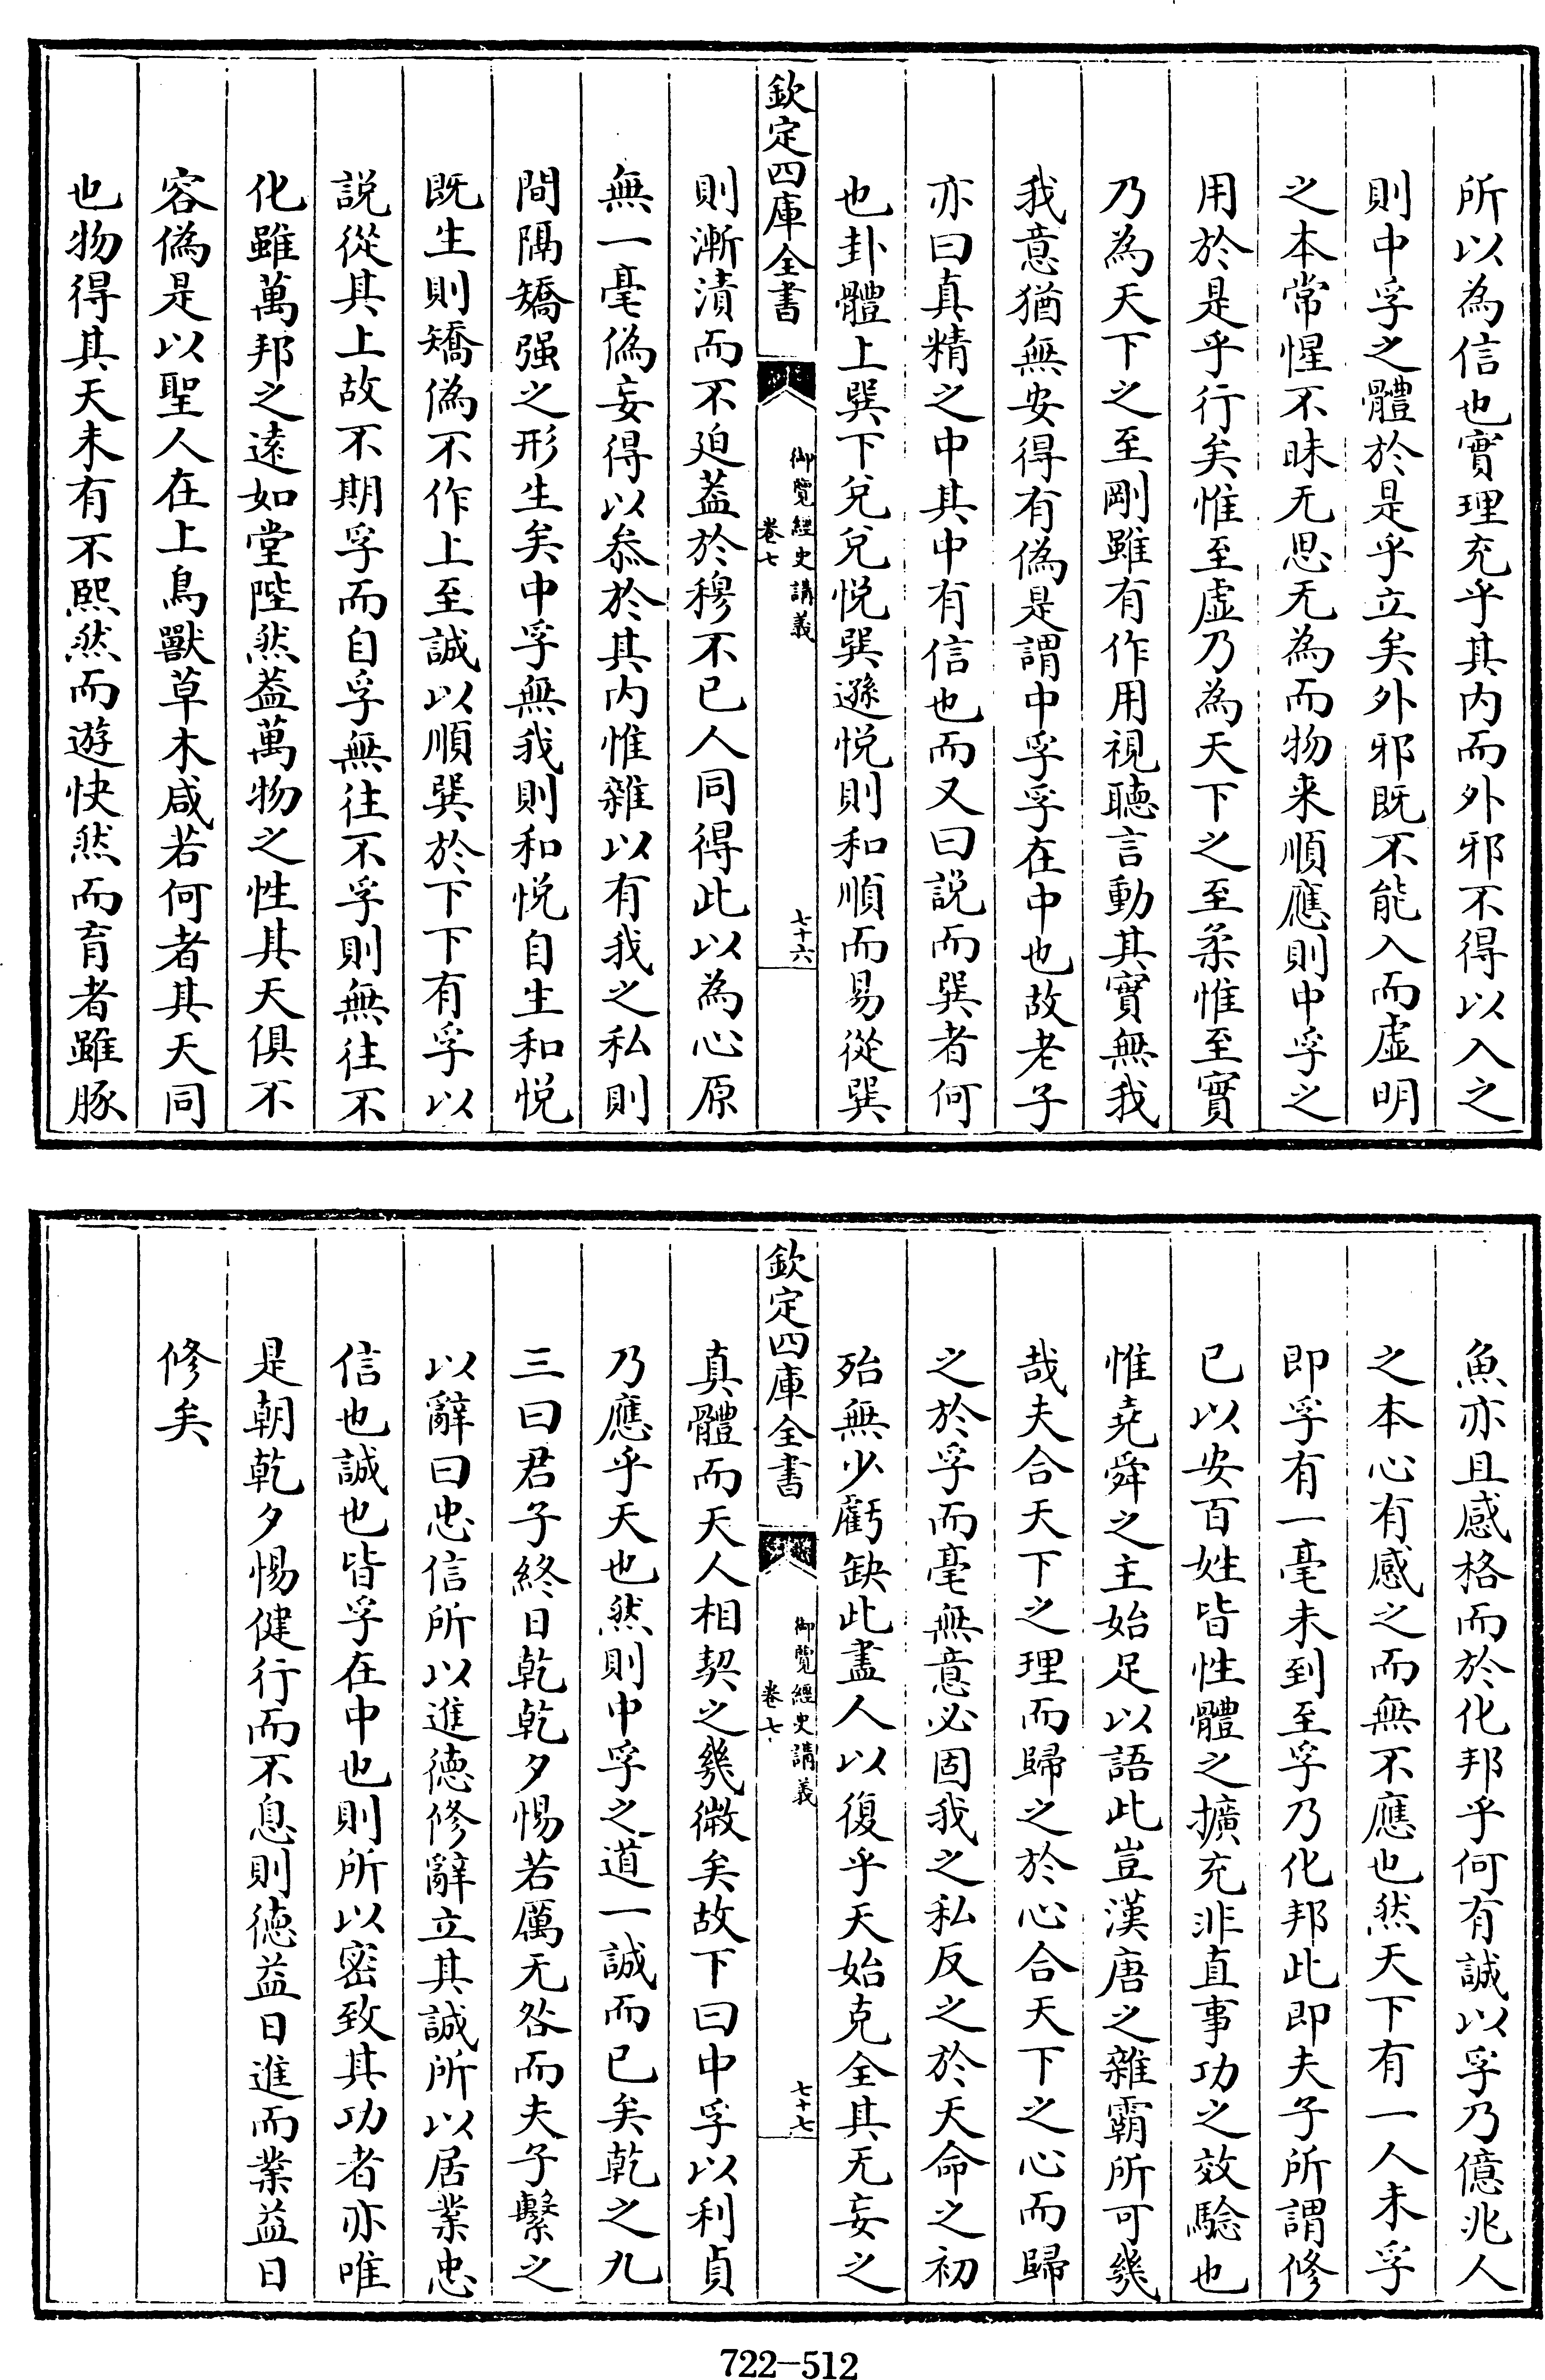 所以為信也實理充乎其内而外邪不得以入之
則中孚之體於是乎立矣外邪既不能入而虚明
之本常惺不昧无思无為而物来順應則中孚之
用於是乎行矣惟至虚乃為天下之至柔惟至實
乃為天下之至剛雖有作用視聴言動其實無我
我意猶無安得有偽是謂中孚孚在中也故老子
亦曰真精之中其中有信也而又曰説而巽者何
也卦體上巽下兌兌悦巽遜悦則和順而易從巽
欽定四庫全書
御覽經史講義
卷七
七十六
則漸漬而不廹葢於穆不已人同得此以為心原
無一毫偽妄得以叅於其内惟雜以有我之私則
間隔矯强之形生矣中孚無我則和悦自生和悦
既生則矯偽不作上至誠以順巽於下下有孚以
説從其上故不期孚而自孚無往不孚則無往不
化雖萬邦之逺如堂陛然葢萬物之性其天俱不
容偽是以聖人在上鳥獸草木咸若何者其天同
也物得其天未有不熙然而遊快然而育者雖豚
魚亦且感格而於化邦乎何有誠以孚乃億兆人
之本心有感之而無不應也然天下有一人未孚
即孚有一毫未到至孚乃化邦此即夫子所謂修
已以安百姓皆性體之擴充非直事功之效驗也
惟堯舜之主始足以語此豈漢唐之雜霸所可幾
哉夫合天下之理而歸之於心合天下之心而歸
之於孚而毫無意必固我之私反之於天命之初
殆無少虧缺此盡人以復乎天始克全其无妄之
欽定四庫全書
御覽經史講義
卷七
七十七
真體而天人相契之幾微矣故下曰中孚以利貞
乃應乎天也然則中孚之道一誠而已矣乾之九
三曰君子終日乾乾夕惕若厲无咎而夫子繫之
以辭曰忠信所以進徳修辭立其誠所以居業忠
信也誠也皆孚在中也則所以密致其功者亦唯
是朝乾夕惕健行而不息則徳益日進而業益日
修矣
722-512